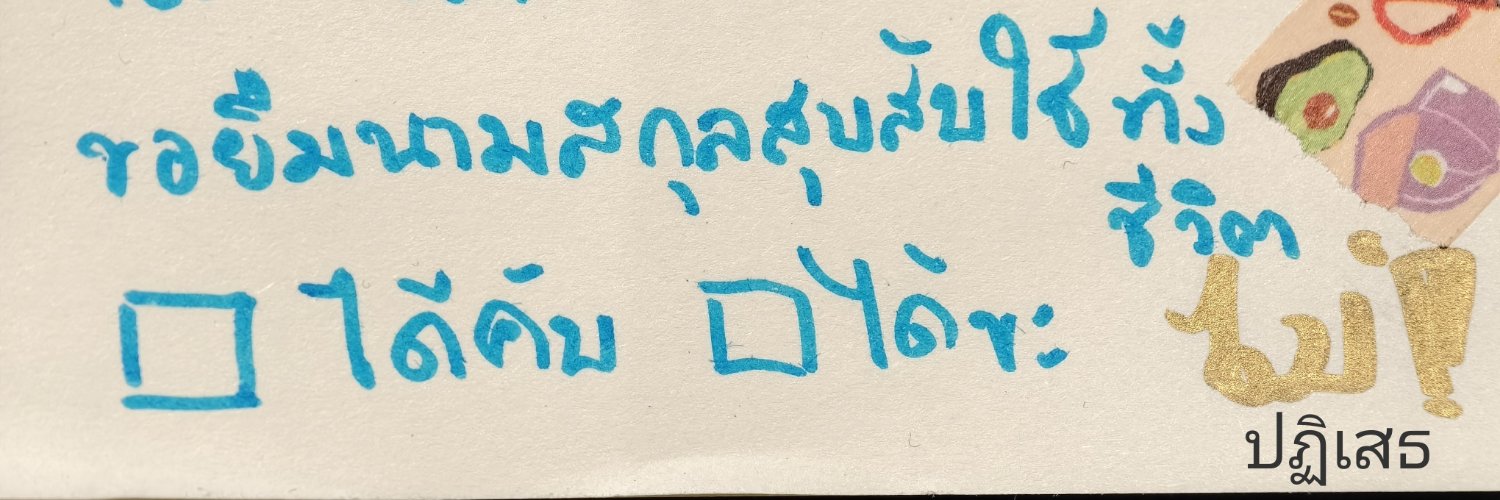 ขอยืมนามสกุลสุบสับใช้ทั้ง
ชีวิต
ได้คับ ได้ขะ
ไม่!
ปฏิเสธ